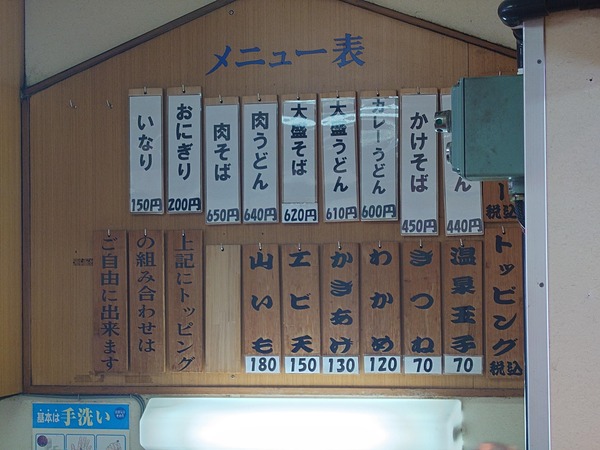 メニュー表
ー
税込
ん
440円
かけそば
450円
カレーうどん
600円
大盛うどん
610円
大盛そば
620円
肉うどん
640円
肉そば
650円
おにぎり
200円
いなり
150円
トッピング
税込
温泉玉子
70
きつね
70
わかめ
120
かきあげ
130
エビ天
150
山いも
180
上記にトッピング
の組み合わせは
ご自由に出来ます
基本は手洗い